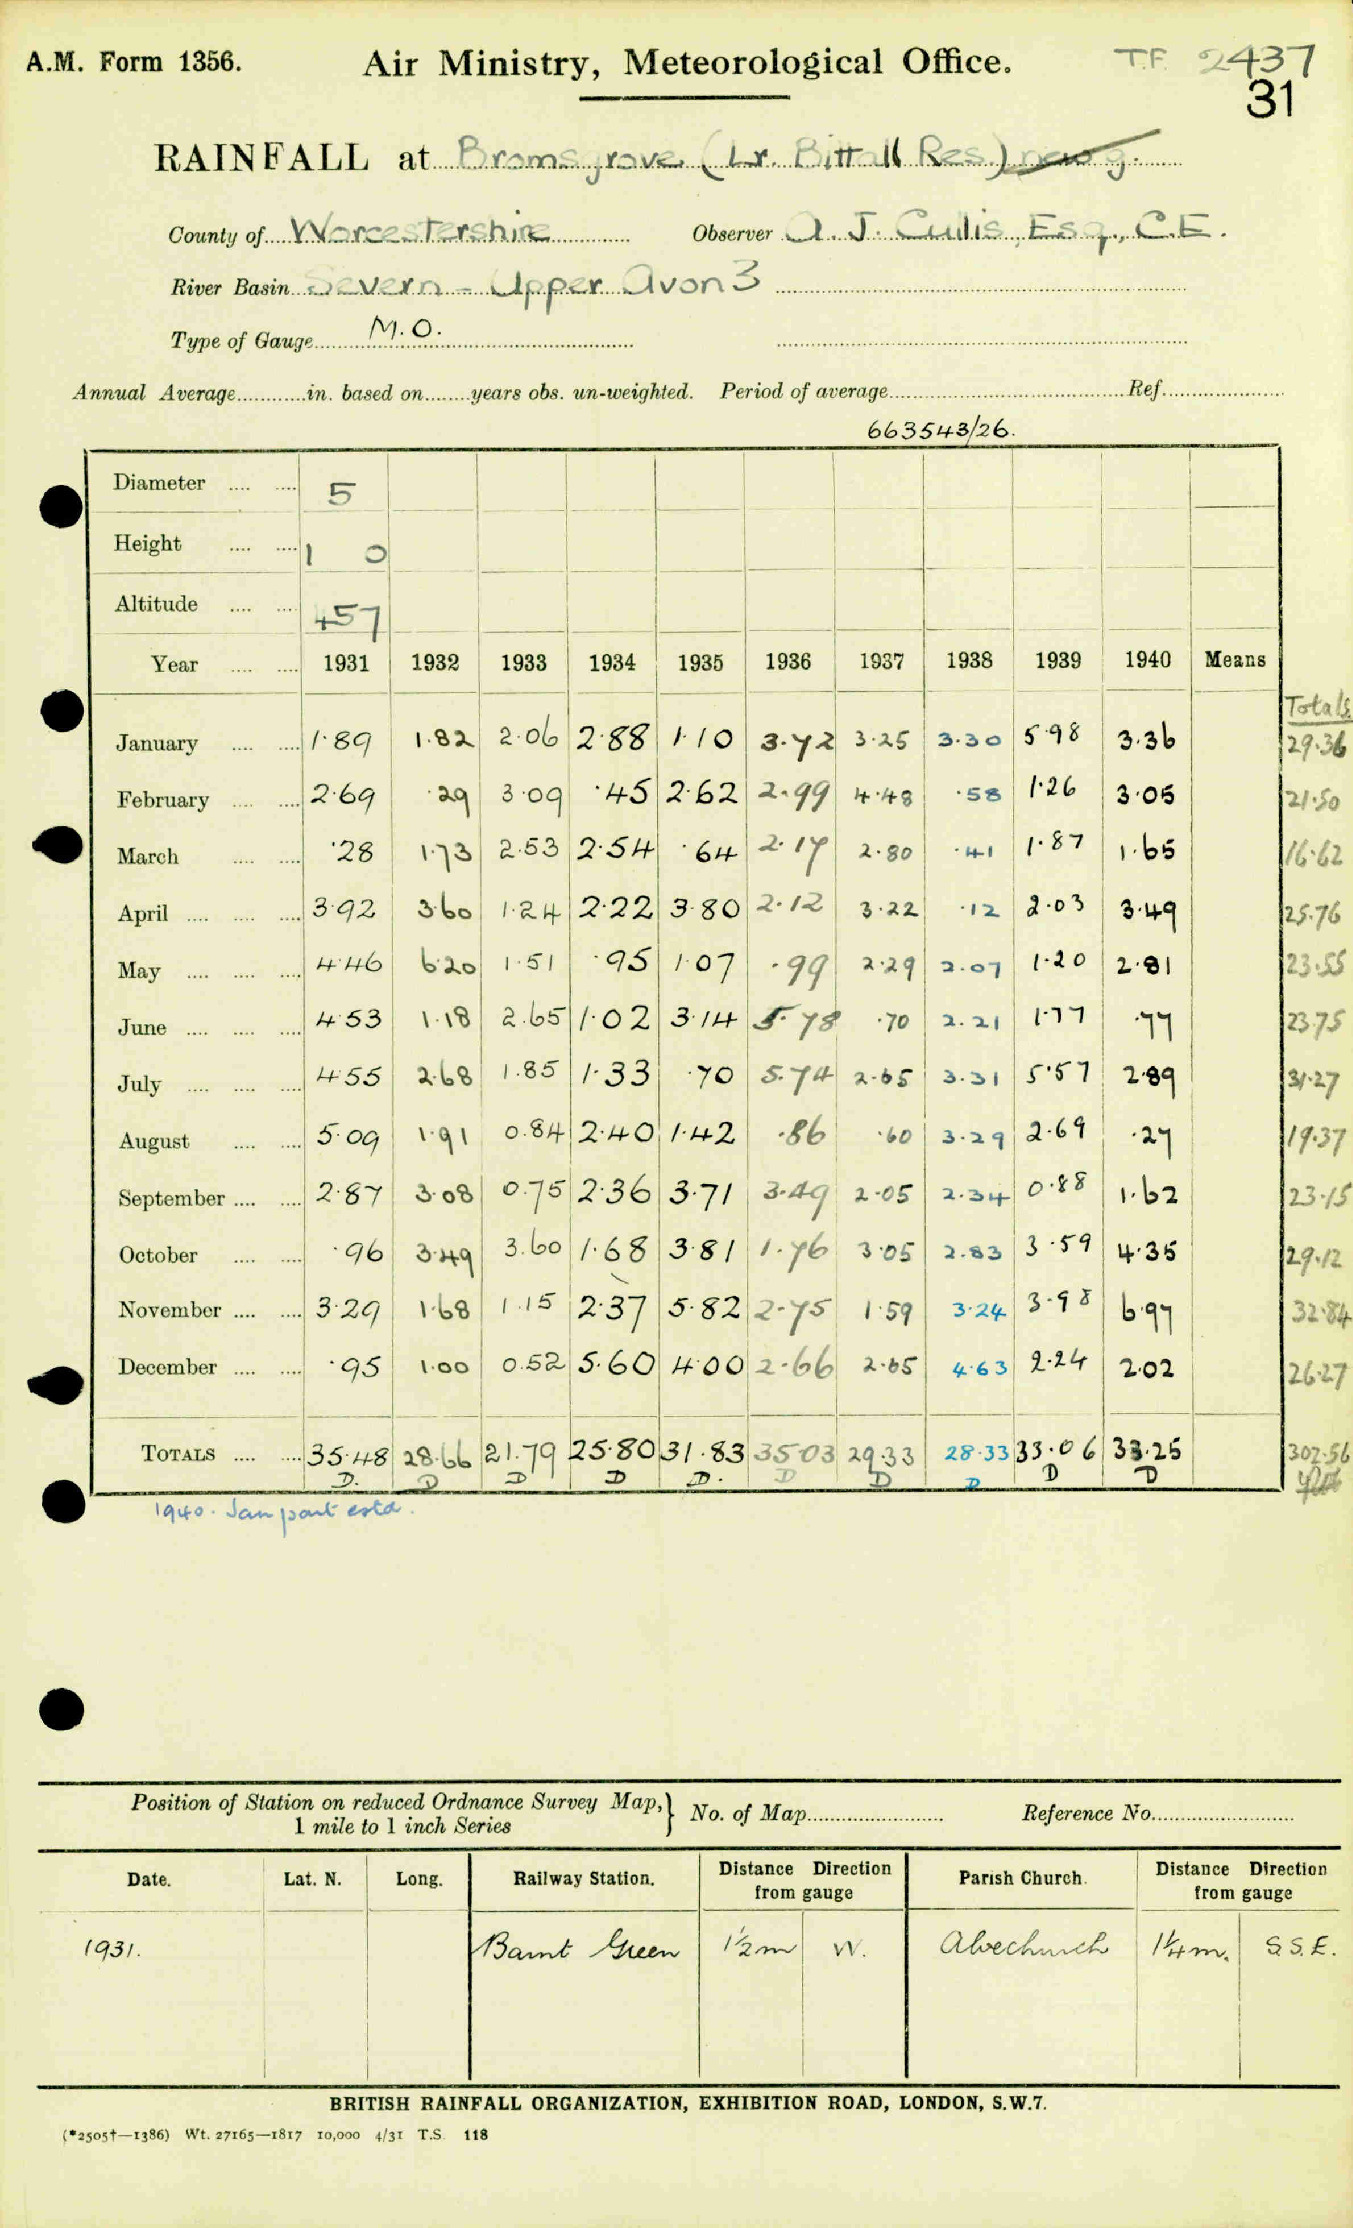 A.M. Form 1356. Air Ministry, Meteorological Office. T.F. 2437
31
RAINFALL at Bromsgrove (Lr. Bittall Res.) new g.
County of Worcestershire Observer A. J. Cullis, Esq., C.E.
River Basin Severn - Upper Avon 3
Type of Gauge M.O.
Annual Average in. based on years obs. un-weighted. Period of average Ref.
663543/26.
Diameter 5
Height 1 0
Altitude 457
Year 1931 1932 1933 1934 1935 1936 1937 1938 1939 1940 Means
Totals
January 1.89 1.82 2.06 2.88 1.10 3.72 3.25 3.30 5.98 3.36 29.36
February 2.69 .29 3.09 .45 2.62 2.99 4.48 .58 1.26 3.05 21.50
March .28 1.73 2.53 2.54 .64 2.17 2.80 .41 1.87 1.65 16.62
April 3.92 3.60 1.24 2.22 3.80 2.12 3.22 .12 2.03 3.49 25.76
May 4.46 6.20 1.51 .95 1.07 .99 2.29 2.07 1.20 2.81 23.55
June 4.53 1.18 2.65 1.02 3.14 5.78 .70 2.21 1.77 .77 23.75
July 4.55 2.68 1.85 1.33 .70 5.74 2.65 3.31 5.57 2.89 31.27
August 5.09 1.91 0.84 2.40 1.42 .86 .60 3.29 2.69 .27 19.37
September 2.87 3.08 0.75 2.36 3.71 3.49 2.05 2.34 0.88 1.62 23.15
October .96 3.49 3.60 1.68 3.81 1.76 3.05 2.83 3.59 4.35 29.12
November 3.29 1.68 1.15 2.37 5.82 2.75 1.59 3.24 3.98 6.97 32.84
December .95 1.00 0.52 5.60 4.00 2.66 2.65 4.63 2.24 2.02 26.27
TOTALS 35.48 28.66 21.79 25.80 31.83 35.03 29.33 28.33 33.06 33.25 302.56
D. D D D D. D D D D D
1940. Jan part estd.
Position of Station on reduced Ordnance Survey Map, } No. of Map Reference No.
1 mile to 1 inch Series
Date. Lat. N. Long. Railway Station. Distance Direction from gauge Parish Church. Distance Direction from gauge
1931. Barnt Green 1½m W. Alvechurch 1¼m. S.S.E.
BRITISH RAINFALL ORGANIZATION, EXHIBITION ROAD, LONDON, S.W.7.
(*2505†—1386) Wt. 27165—1817 10,000 4/31 T.S. 118